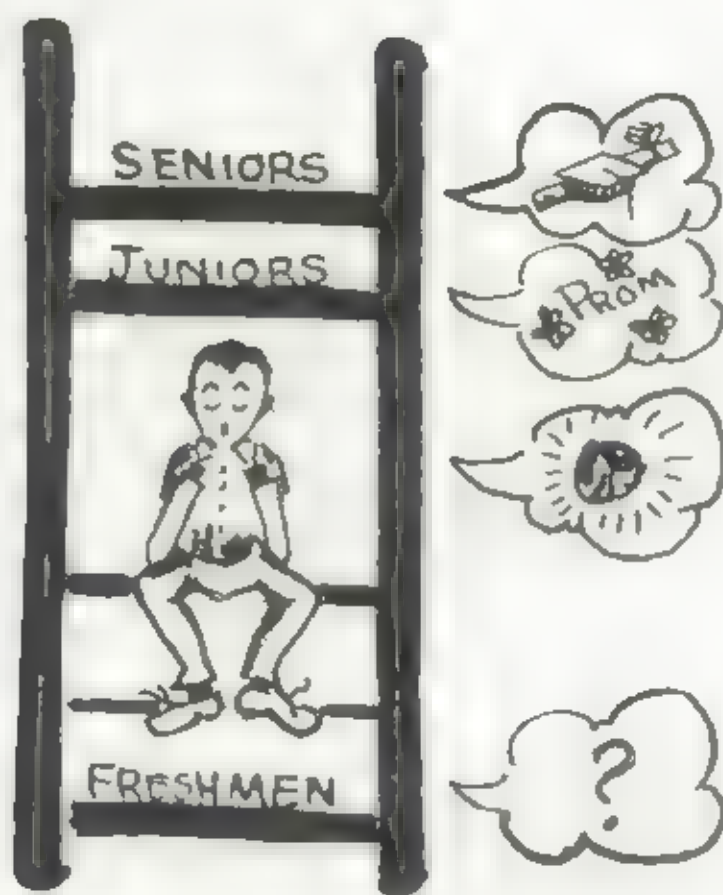 SENIORS
JUNIORS
PROM
FRESHMEN
?